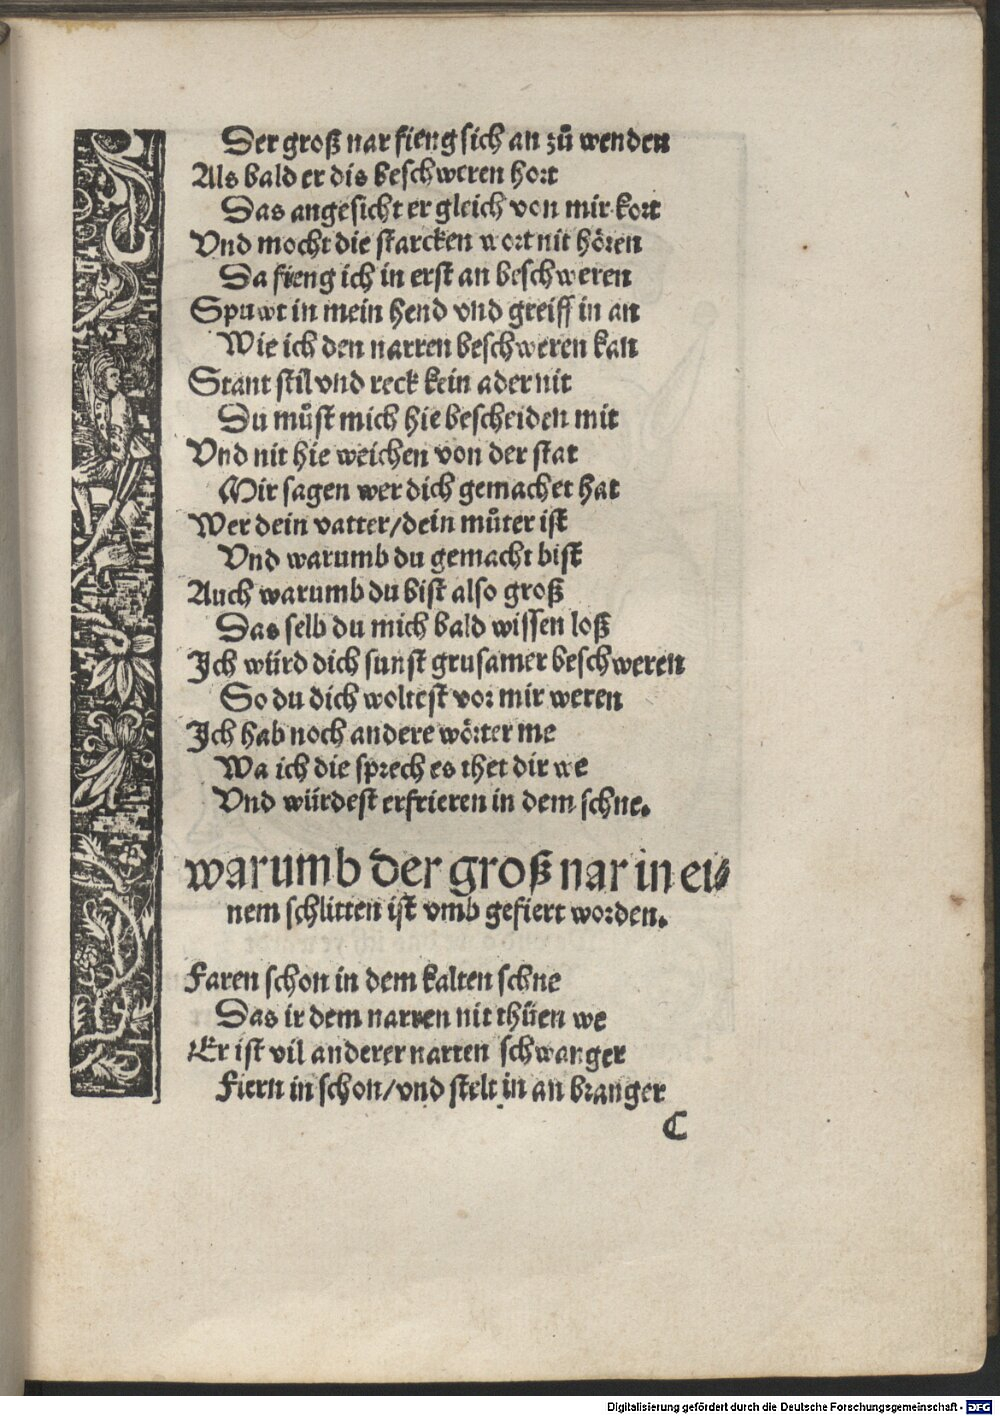 Der groß nar fieng sich an zů wenden
Als bald er dis beschweren hort
Das angesicht er gleich von mir kort
Vnd mocht die starcken wort nit hören
Da fieng ich in erst an beschweren
Spuwt in mein hend vnd greiff in an
Wie ich den narren beschweren kan
Stant stil vnd reck kein ader nit
Du můst mich hie bescheiden mit
Vnd nit hie weichen von der stat
Mir sagen wer dich gemachet hat
Wer dein vatter/dein můter ist
Vnd warumb du gemacht bist
Auch warumb du bist also groß
Das selb du mich bald wissen loß
Ich würd dich sunst grusamer beschweren
So du dich woltest vor mir weren
Ich hab noch andere wörter me
Wa ich die sprech es thet dir we
Vnd würdest erfrieren in dem schne.
warumb der groß nar in ei⸗
nem schlitten ist vmb gefiert worden.
Faren schon in dem kalten schne
Das ir dem narren nit thüen we
Er ist vil anderer narren schwanger
Fiern in schon/vnd stelt in an branger
C
Digitalisierung gefördert durch die Deutsche Forschungsgemeinschaft - DFG